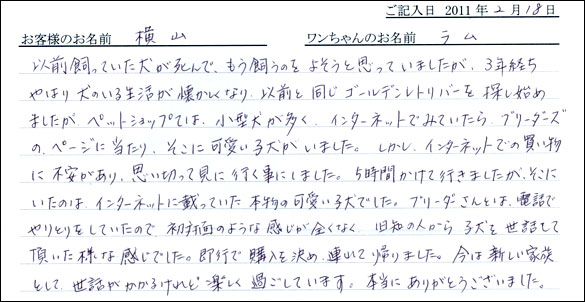 ご記入日 2011年2月18日
お客様のお名前 横山 ワンちゃんのお名前 ラム
以前飼っていた犬が死んで、もう飼うのをよそうと思っていましたが、3年経ち
やはり犬のいる生活が懐かしくなり 以前と同じゴールデンレトリバーを探し始め
ましたが、ペットショップでは、小型犬が多く、インターネットでみていたら、ブリーダーズ
の、ページに当たり、そこに可愛い子犬がいました。しかし、インターネットでの買い物
に不安があり、思い切って見に行く事にしました。5時間かけて行きましたが、そこに
いたのは、インターネットに載っていた本物の可愛い子犬でした。ブリーダーさんとは、電話で
やりとりをしていたので 初対面のような感じが全くなく 旧知の人から子犬を世話して
頂いた様な感じでした。即行で購入を決め、連れて帰りました。今は新しい家族
として、世話がかかるけれど楽しく過ごしています。本当にありがとうございました。